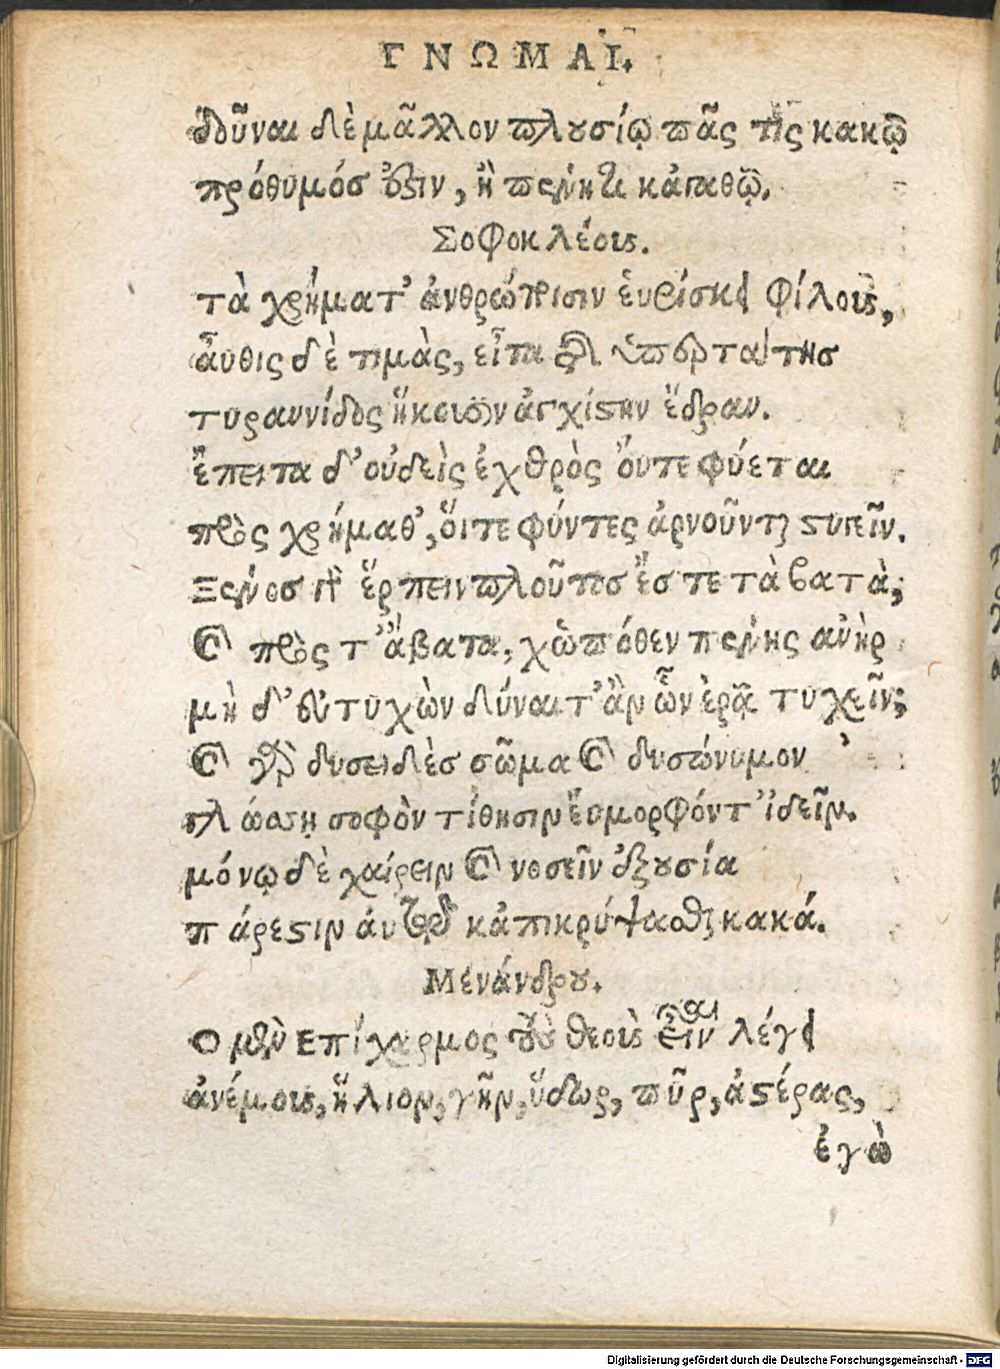 ΓΝΩΜΑΙ.
δοῦναι δὲ μᾶλλον πλουσίῳ πᾶς τις κακῷ
πρόθυμός ἐστιν, ἢ πένητι κἀγαθῷ.
Σοφοκλέους.
τὰ χρήματ' ἀνθρώποισιν εὑρίσκει φίλους,
αὖθις δὲ τιμὰς, εἶτα τῆς ὑπερτάτης
τυραννίδος ἥκουσιν ἀγχίστην ἕδραν.
ἔπειτα δ' οὐδεὶς ἐχθρὸς οὔτε φύεται
πρὸς χρήμαθ', οἵτε φύντες ἀρνοῦνται στυγεῖν.
Ξένος γὰρ ἕρπειν πλοῦτος ἔς τε τὰ βατὰ;
καὶ πρὸς τ' ἄβατα, χὡπόθεν πένης ἀνὴρ
μὴ δ' εὐτυχὼν δύναιτ' ἂν ὧν ἐρᾷ τυχεῖν;
καὶ γὰρ δυσειδὲς σῶμα καὶ δυσώνυμον
γλώσσῃ σοφὸν τίθησιν εὔμορφόντ' ἰδεῖν.
μόνῳ δὲ χαίρειν καὶ νοσεῖν ἐξουσία
πάρεστιν αὐτῷ κἀπικρύψασθαι κακά.
Μενάνδρου.
Ο μὲν Επίχαρμος τοὺς θεοὺς εἶναι λέγει
ἀνέμους, ἥλιον, γῆν, ὕδωρ, πῦρ, ἀστέρας,
ἐγὼ
Digitalisierung gefördert durch die Deutsche Forschungsgemeinschaft - DFG